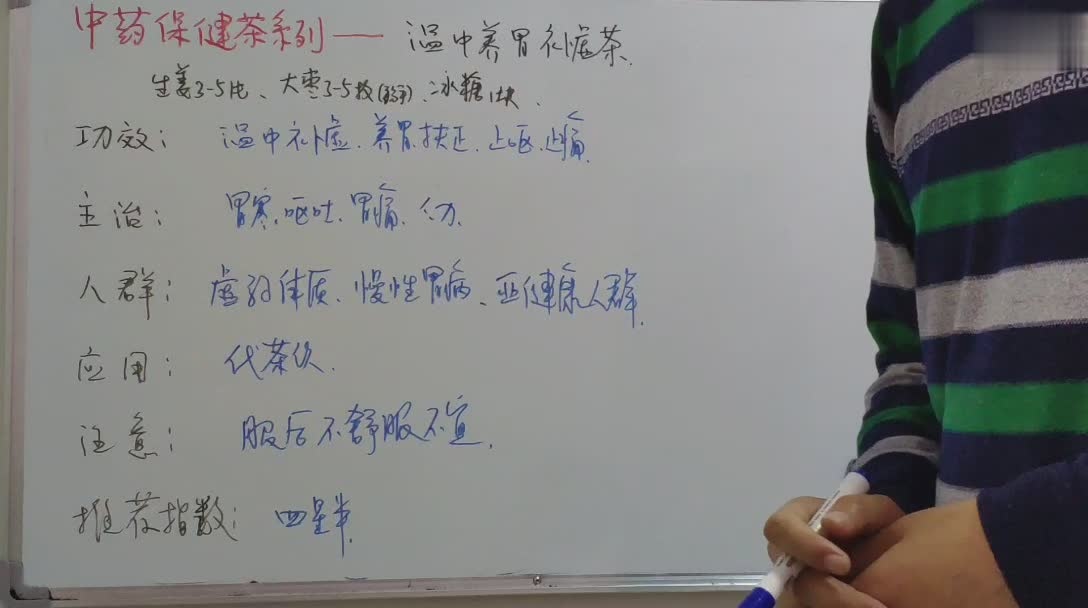 中药保健茶系列— 温中养胃补虚茶.
生姜3-5片、大枣3-5枚(掰开)、冰糖1块.
功效: 温中补虚.养胃扶正.止呕.止痛.
主治: 胃寒.呕吐.胃痛.
人群: 虚弱体质、慢性胃病、亚健康人群.
应用: 代茶饮.
注意: 服后不舒服不宜.
推荐指数: 四星半.